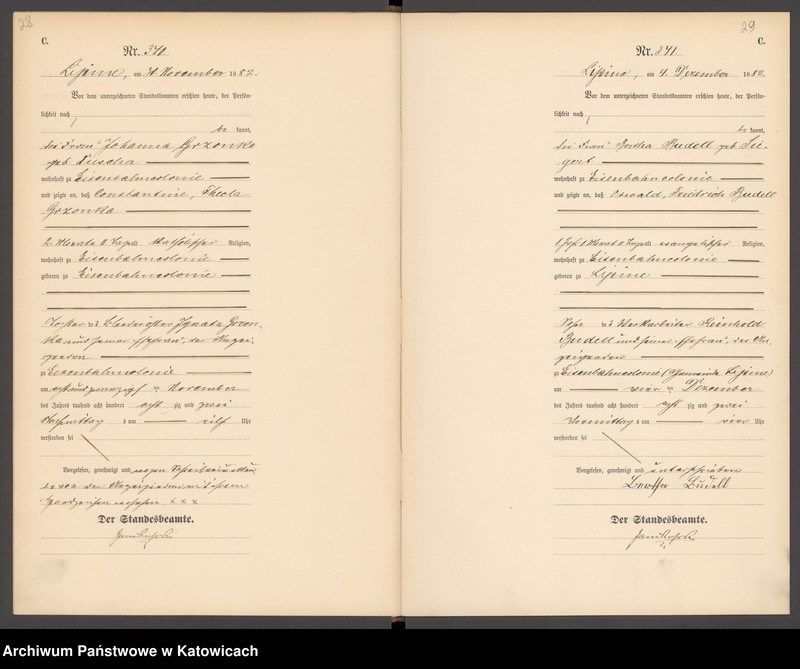 28
C.
Nr. 340
Lipine, am 30. November 1882.
Vor dem unterzeichneten Standesbeamten erschien heute, der Persön-
lichkeit nach
be kannt,
die Frau Johanna Grzonka
geb.
wohnhaft zu Eisenbahncolonie
und zeigte an, daß Constantine, Thecla
Grzonka
2 Monate alt katholischer Religion,
wohnhaft zu Eisenbahncolonie
geboren zu Eisenbahncolonie
Tochter des Ignatz Grzon-
ka und seiner Ehefrau, der Anzei-
genden
zu Eisenbahncolonie
am achtundzwanzigsten November
des Jahres tausend acht hundert acht zig und zwei
Nachmittag s um elf Uhr
verstorben sei
Vorgelesen, genehmigt und wegen Schreibensunkun-
de von der Anzeigenden mit ihrem
Handzeichen versehen x x x
Der Standesbeamte.
29
C.
Nr. 341
Lipine, am 4. Dezember 1882.
Vor dem unterzeichneten Standesbeamten erschien heute, der Persön-
lichkeit nach
be kannt,
die Frau Bertha Budell geb.
wohnhaft zu Eisenbahncolonie
und zeigte an, daß Oswald, Friedrich Budell
evangelischer Religion,
wohnhaft zu Eisenbahncolonie
geboren zu Lipine
Sohn des Werkarbeiter Reinhold
Budell und seiner Ehefrau, der An-
zeigenden
zu Eisenbahncolonie (Gemeinde Lipine)
am vier ten Dezember
des Jahres tausend acht hundert acht zig und zwei
Vormittag s um vier Uhr
verstorben sei
Vorgelesen, genehmigt und unterschrieben
Bertha Budell
Der Standesbeamte.
Archiwum Państwowe w Katowicach